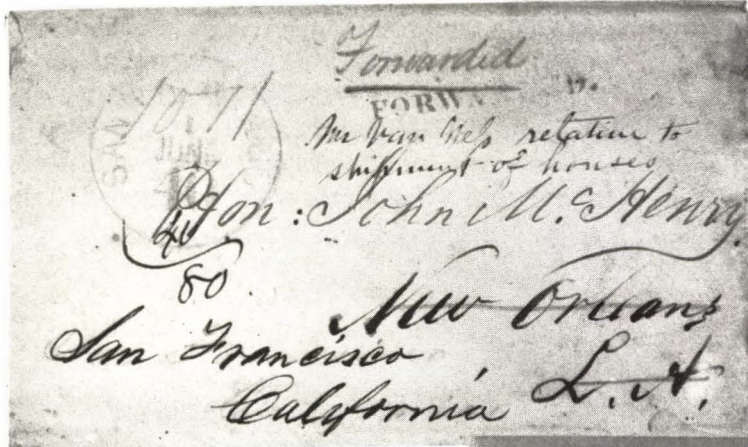 Forwarded
FORWA D.
1071
Mr Van Ness relation to
shipment of houses
SAN
1
JUNE
Hon: John McHenry.
40
80
New Orleans
San Francisco,
L.A.
California